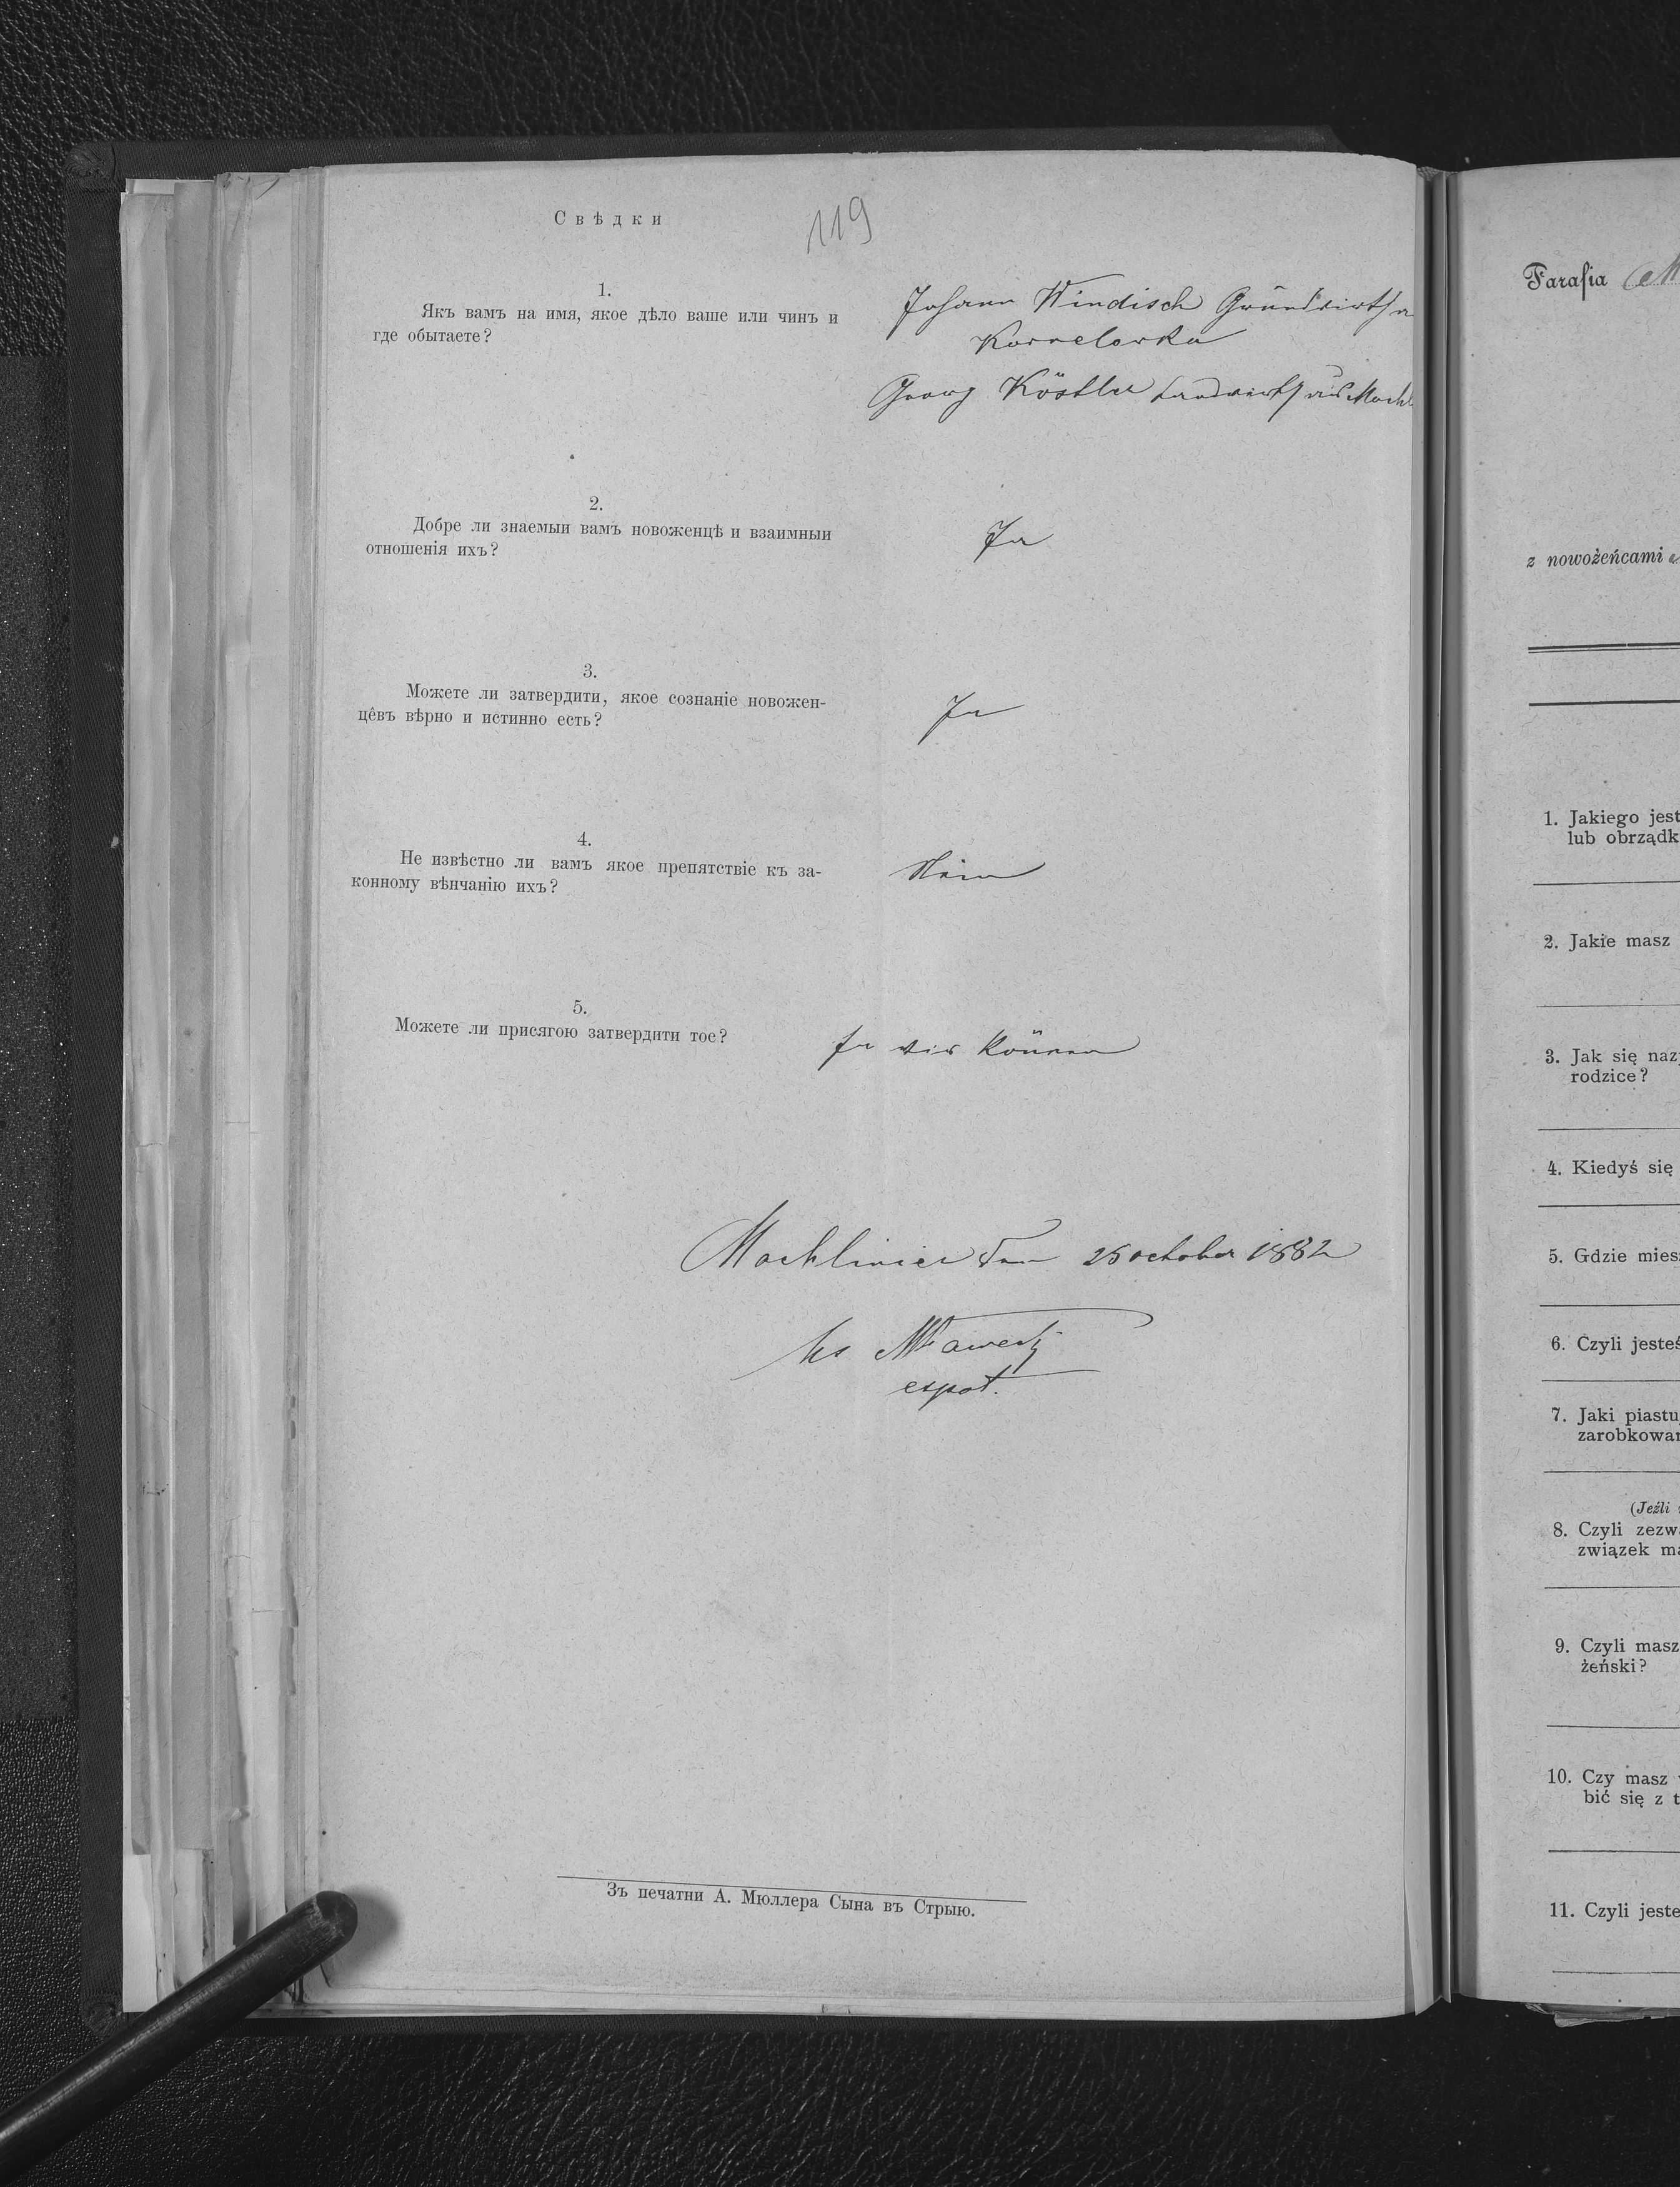 Свѣдки
119
1.
Якъ вамъ на имя, якое дѣло ваше или чинъ и
где обытаете?
Johann Windisch Grundwirth
Kornelowka
Georg Köstler Landwirth aus Machl
2.
Добре ли знаемыи вамъ новоженцѣ и взаимныи
отношенія ихъ?
Ja
3.
Можете ли затвердити, якое сознаніе новожен-
цêвъ вѣрно и истинно есть?
Ja
4.
Не извѣстно ли вамъ якое препятствіе къ за-
конному вѣнчанію ихъ?
Nein
5.
Можете ли присягою затвердити тое?
Ja wir können
Machliniec den 25 october 1882
ks
expot.
Зъ печатни А. Мюллера Сына въ Стрыю.
Parafia
z nowożeńcami
1. Jakiego jest
lub obrządk
2. Jakie masz
3. Jak się naz
rodzice?
4. Kiedyś się
5. Gdzie mies
6. Czyli jesteś
7. Jaki piastu
zarobkowa
(Jeźli
8. Czyli zezw
związek ma
9. Czyli masz
żeński?
10. Czy masz
bić się z t
11. Czyli jeste